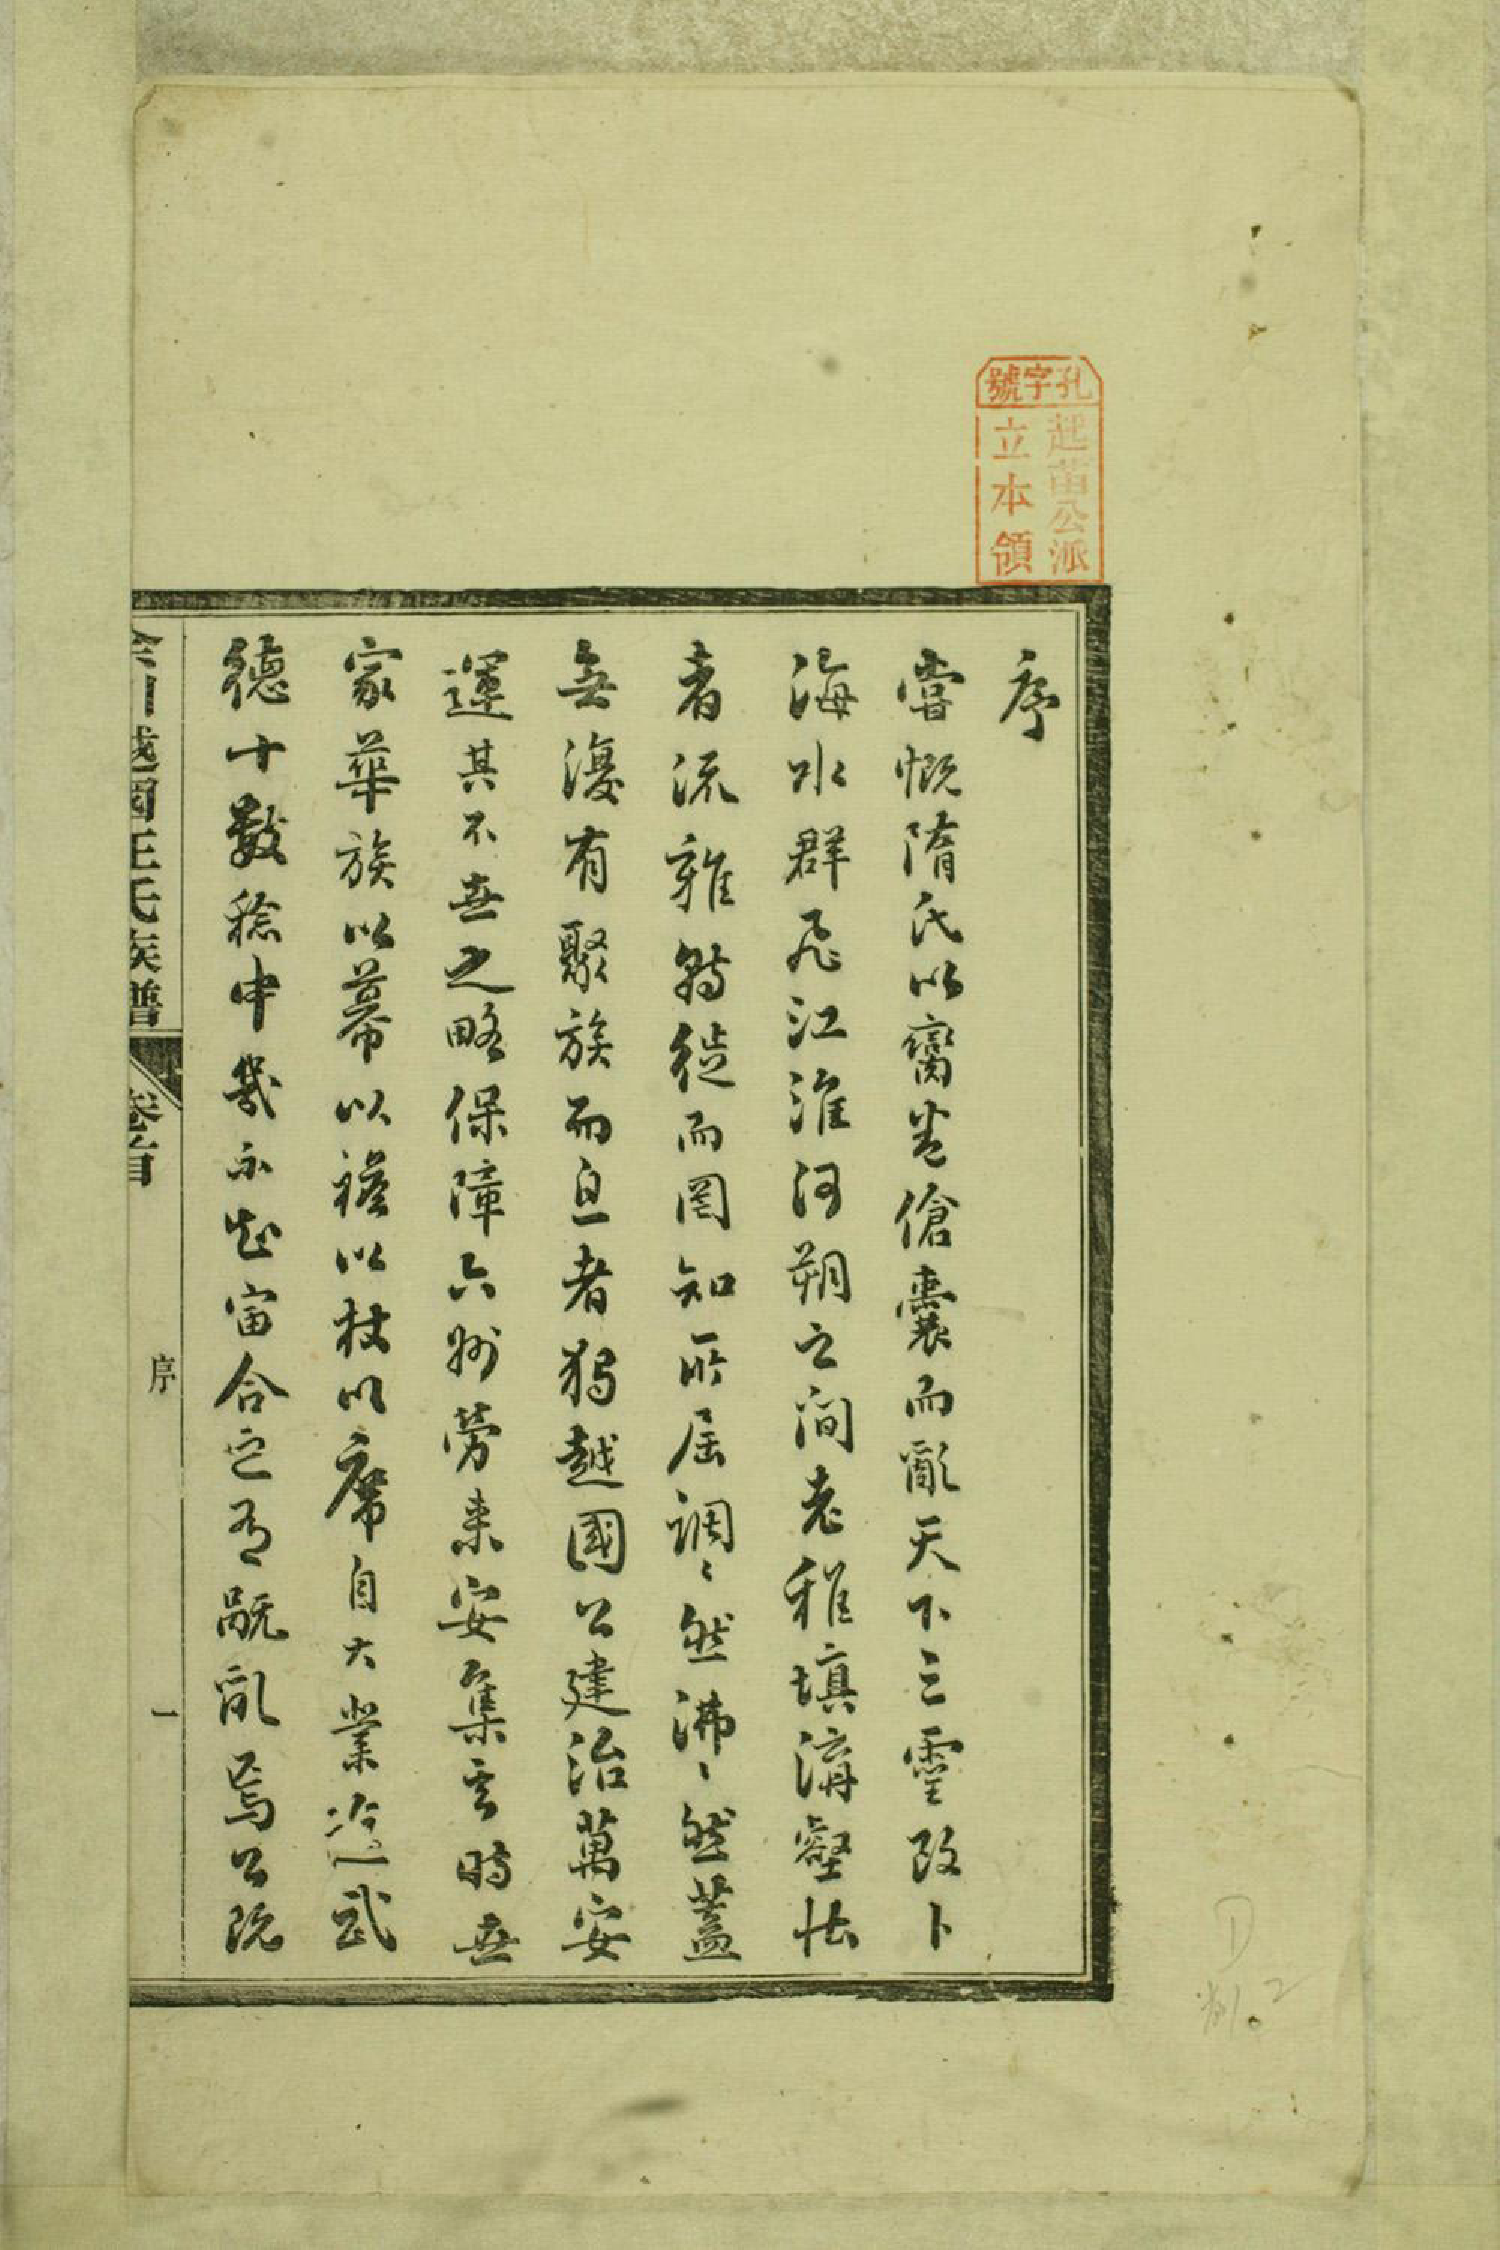 孔字號
起苗公派
立本領
序
嘗慨隋氏以臠卷傖囊而亂天下三靈改卜
海水群飛江淮河朔之間老稚填溝壑怯
者流離轉徙而罔知所屆調〻然沸〻然蓋
無復有聚族而息者獨越國公建治萬安
運其不世之略保障六州勞来安集云時世
家華族以幕以襜以杖以席自大業迄武
德十數稔中幾不知宙合之有翫亂焉公既
余川越國汪氏族譜
卷首
序
一